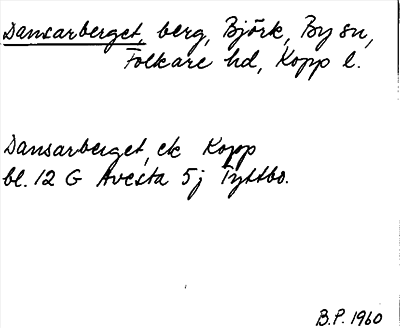 Dansarberget, berg, Björk, By sn,
Folkare hd, Kopp l.
Dansarberget, ek Kopp
bl. 12 G Avesta 5j Tyttbo.
B.P. 1960